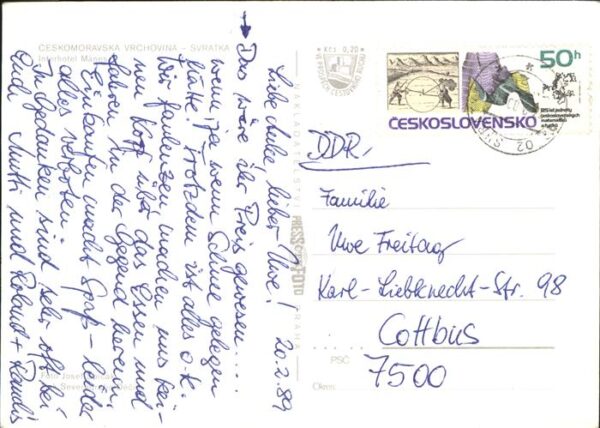 ČESKOMORAVSKÁ VRCHOVINA - SVRATKA
Interhotel
Kčs 0,20
50 h
ČESKOSLOVENSKO
PRESSFOTO
PSČ
Okres
DDR
Familie
Uwe Freitag
Karl-Liebknecht-Str. 98
Cottbus
7500
20.2.89
Liebe Anke, lieber Uwe!
Das wäre der Preis gewesen....
wenn, ja wenn Schnee gelegen
hätte! Trotzdem ist alles o.k.
Wir faulenzen, machen uns kei-
nen Kopf über das Essen und
fahren in der Gegend herum.
Einkaufen macht Spaß - leider
alles verboten.
In Gedanken sind sehr oft bei
Euch Mutti und Roland +